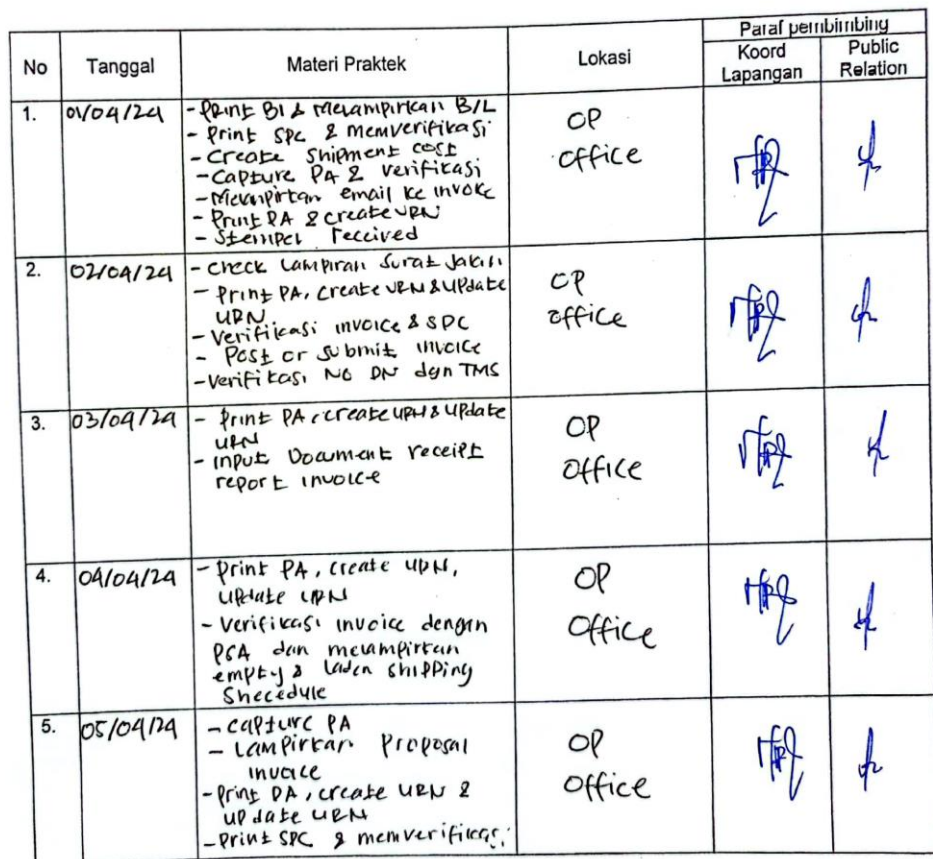 No Tanggal Materi Praktek Lokasi Paraf pembimbing
Koord Lapangan Public Relation
1. 01/04/24
- Print B1 & Melampirkan B/L
- Print SPC & memverifikasi
- Create Shipment cost
- Capture PA & verifikasi
- Melampirkan email ke invoice
- Print PA & create URN
- Stempel received
OP
office
2. 02/04/24
- Check Lampiran Surat Jalan
- Print PA, create URN & UPdate
URN
- Verifikasi invoice & SPC
- Post or submit invoice
- Verifikasi No DN dgn TMS
OP
office
3. 03/04/24
- Print PA, create URN & UPdate
URN
- input Document receipt
report invoice
OP
Office
4. 04/04/24
- Print PA, create URN,
UPdate URN
- Verifikasi invoice dengan
PGA dan melampirkan
empty & laden shipping
Shecedule
OP
Office
5. 05/04/24
- Capture PA
- Lampirkan Proposal
invoice
- Print PA, create URN &
update URN
- Print SPC & memverifikasi
OP
Office